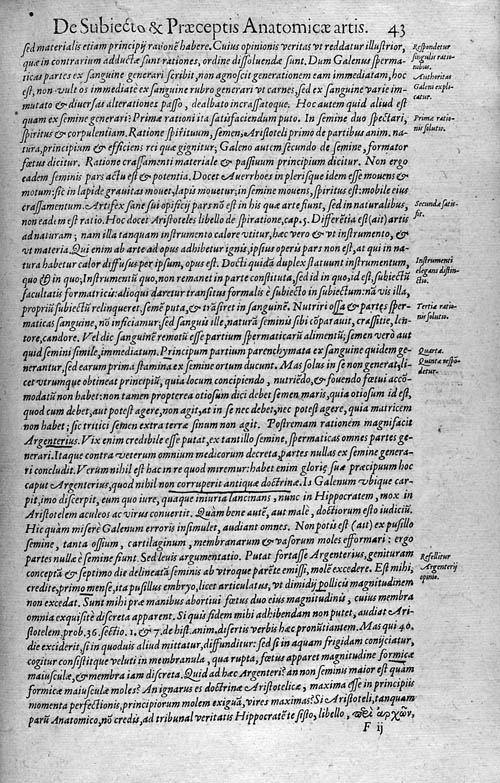 De Subiecto & Præceptis Anatomicæ artis. 43
sed materialis etiam principij rationē habere. Cuius opinionis veritas vt reddatur illustrior,
quæ in contrarium adductæ sunt rationes, ordine dissoluendæ sunt. Dum Galenus sperma-
ticas partes ex sanguine generari scribit, non agnoscit generationem eam immediatam, hoc
est, non vult os immediatè ex sanguine rubro generari vt carnes, sed ex sanguine varie im-
mutato & diuersas alterationes passo, dealbato incrassatoque. Hoc autem quid aliud est
quam ex semine generari? Primæ rationi ita satisfaciendum puto. In semine duo spectari,
spiritus & corpulentiam. Ratione spirituum, semen, Aristoteli primo de partibus anim. na-
tura, principium & efficiens rei quæ gignitur; Galeno autem secundo de semine, formator
fœtus dicitur. Ratione crassamenti materiale & passiuum principium dicitur. Non ergo
eadem seminis pars actu est & potentia. Docet Auerrhoes in plerisque idem esse mouens &
motum: sic in lapide grauitas mouet, lapis mouetur; in semine mouens, spiritus est: mobile eius
crassamentum. Artifex sanè sui opificij pars nō est in his quæ arte fiunt, sed in naturalibus,
non eadem est ratio. Hoc docet Aristoteles libello de spiratione, cap. 5. Differētia est (ait) artis
ad naturam; nam illa tanquam instrumento calore vtitur, hæc vero & vt instrumento, &
vt materia. Qui enim ab arte ad opus adhibetur ignis, ipsius operis pars non est, at qui in na-
tura habetur calor diffusus per ipsum, opus est. Docti quidā duplex statuunt instrumentum,
quo & in quo; Instrumentū quo, non remanet in parte constituta, sed id in quo, id est, subiectū
facultatis formatricis: alioqui daretur transitus formalis è subiecto in subiectum: nā vis illa,
propriū subiectū relinqueret, semē puta, & trāsiret in sanguinē. Nutriri ossa & partes sper-
maticas sanguine, nō inficiamur; sed sanguis ille, naturā seminis sibi cōparauit, crassitie, len-
tore, candore. Vel dic sanguinē remotū esse partium spermaticarū alimentū; semen verò aut
quid semini simile, immediatum. Principum partium parenchymata ex sanguine quidem ge-
nerantur, sed earum prima stamina ex semine ortum ducunt. Mas solus in se non generat, li-
cet vtrumque obtineat principiū, quia locum concipiendo, nutriēdo, & fouendo fœtui accō-
modatū non habet: non tamen propterea otiosum dici debet semen maris, quia otiosum id est,
quod cum debet, aut potest agere, non agit, at in se nec debet, nec potest agere, quia matricem
non habet; sic tritici semen extra terrā sinum non agit. Postremam rationem magnifacit
Argenterius. Vix enim credibile esse putat, ex tantillo semine, spermaticas omnes partes ge-
nerari. Itaque contra veterum omnium medicorum decreta, partes nullas ex semine genera-
ri concludit. Verum nihil est hac in re quod miremur: habet enim gloriæ suæ præcipuum hoc
caput Argenterius, quod nihil non corruperit antiquæ doctrinæ. Is Galenum vbique car-
pit, imo discerpit, eum quo iure, quaque iniuria lancinans, nunc in Hippocratem, mox in
Aristotelem aculeos ac virus conuertit. Quàm bene autē, aut malè, doctiorum esto iudiciū.
Hic quàm miserè Galenum erroris insimulet, audiant omnes. Non potis est (ait) ex pusillo
semine, tanta ossium, cartilaginum, membranarum & vasorum moles efformari: ergo
partes nullæ è semine fiunt. Sed leuis argumentatio. Putat fortasse Argenterius, genituram
conceptā & septimo die delineatā seminis ab vtroque parēte emissi, molē excedere. Est mihi,
credite, primo mense, ita pusillus embryo, licet articulatus, vt dimidij pollicis magnitudinem
non excedat. Sunt mihi præ manibus abortiui fœtus duo eius magnitudinis, cuius membra
omnia exquisitè discreta apparent. Si quis fidem mihi adhibendam non putet, audiat Ari-
stotelem, prob. 36. sectio. 1. & 7. de hist. anim. disertis verbis hæc pronūtiantem. Mas qui 40.
die exciderit, si in quoduis aliud mittatur, diffunditur: sed si in aquam frigidam conijciatur,
cogitur consistitque veluti in membranula, qua rupta, fœtus apparet magnitudine formicæ
maiusculæ, & membra iam discreta. Quid ad hæc Argenteri? an non seminis maior est quam
formicæ maiusculæ moles? An ignarus es doctrinæ Aristotelicæ, maxima esse in principiis
momenta perfectionis, principiorum molem exiguā, vires maximas? Si Aristoteli, tanquam
parū Anatomico, nō credis, ad tribunal veritatis Hippocratē te sisto, libello, περὶ ἀρχῶν,
F ij
Respondetur
singulis ratio-
nibus.
Authoritas
Galeni expli-
catur.
Primæ ratio-
nis solutio.
Secundæ satis-
fit.
Instrumenti
elegans distin-
ctio.
Tertiæ ratio-
nis solutio.
Quartæ.
Quintæ respō-
detur.
Refellitur
Argenterij
opinio.